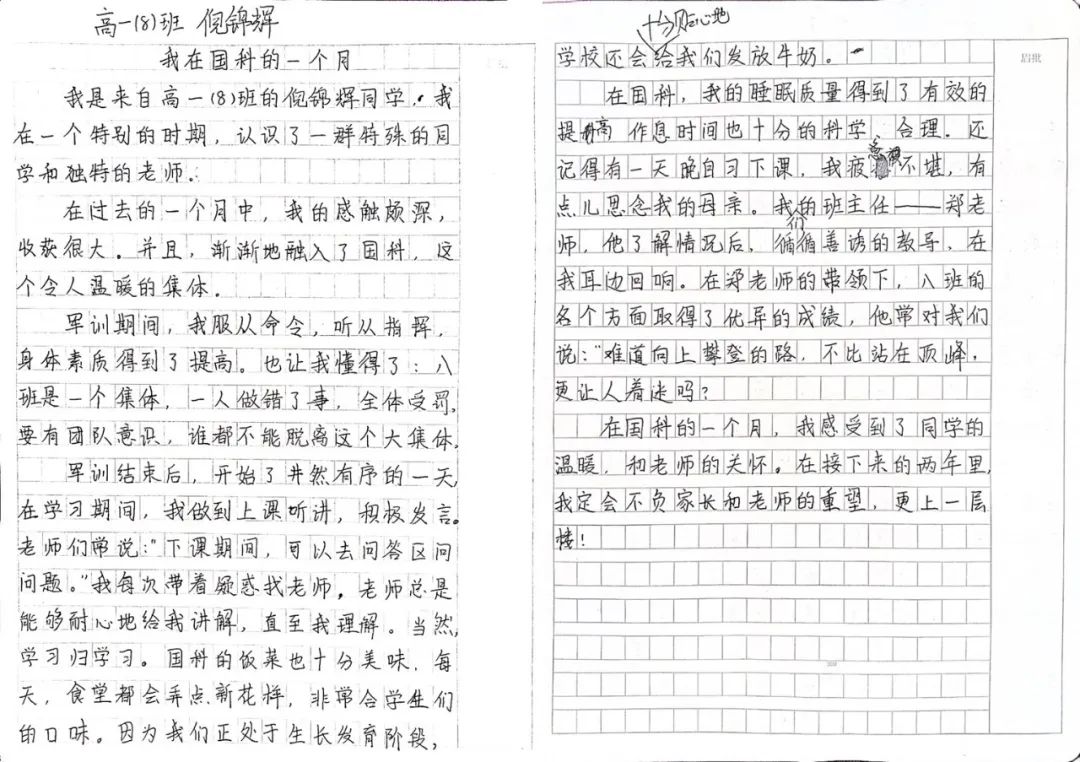 高一(8)班 倪锦辉
我在国科的一个月
我是来自高一(8)班的倪锦辉同学，我
在一个特别的时期，认识了一群特殊的同
学和独特的老师。
在过去的一个月中，我的感触颇深，
收获很大。并且，渐渐地融入了国科，这
个令人温暖的集体。
军训期间，我服从命令，听从指挥，
身体素质得到了提高。也让我懂得了：八
班是一个集体，一人做错了事，全体受罚，
要有团队意识，谁都不能脱离这个大集体。
军训结束后，开始了井然有序的一天，
在学习期间，我做到上课听讲，积极发言。
老师们常说：“下课期间，可以去问答区问
问题。”我每次带着疑惑找老师，老师总是
能够耐心地给我讲解，直至我理解。当然，
学习归学习。国科的饭菜也十分美味，每
天，食堂都会弄点新花样，非常合学生们
的口味。因为我们正处于生长发育阶段，
十分贴心地
学校还会给我们发放牛奶。
眉批
在国科，我的睡眠质量得到了有效的
提高 作息时间也十分的科学、合理。还
记得有一天晚自习下课，我疲惫不堪，有
点儿思念我的母亲。我们的班主任——郑老
师，他了解情况后，循循善诱的教导，在
我耳边回响。在郑老师的带领下，八班的
各个方面取得了优异的成绩，他常对我们
说：“难道向上攀登的路，不比站在顶峰，
更让人着迷吗？
在国科的一个月，我感受到了同学的
温暖，和老师的关怀。在接下来的两年里，
我定会不负家长和老师的重望，更上一层
楼！